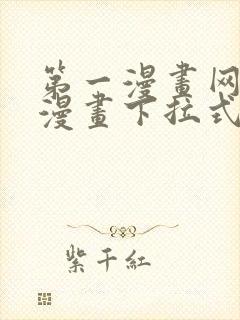 第一漫畫网
漫畫下拉式
紫千紅